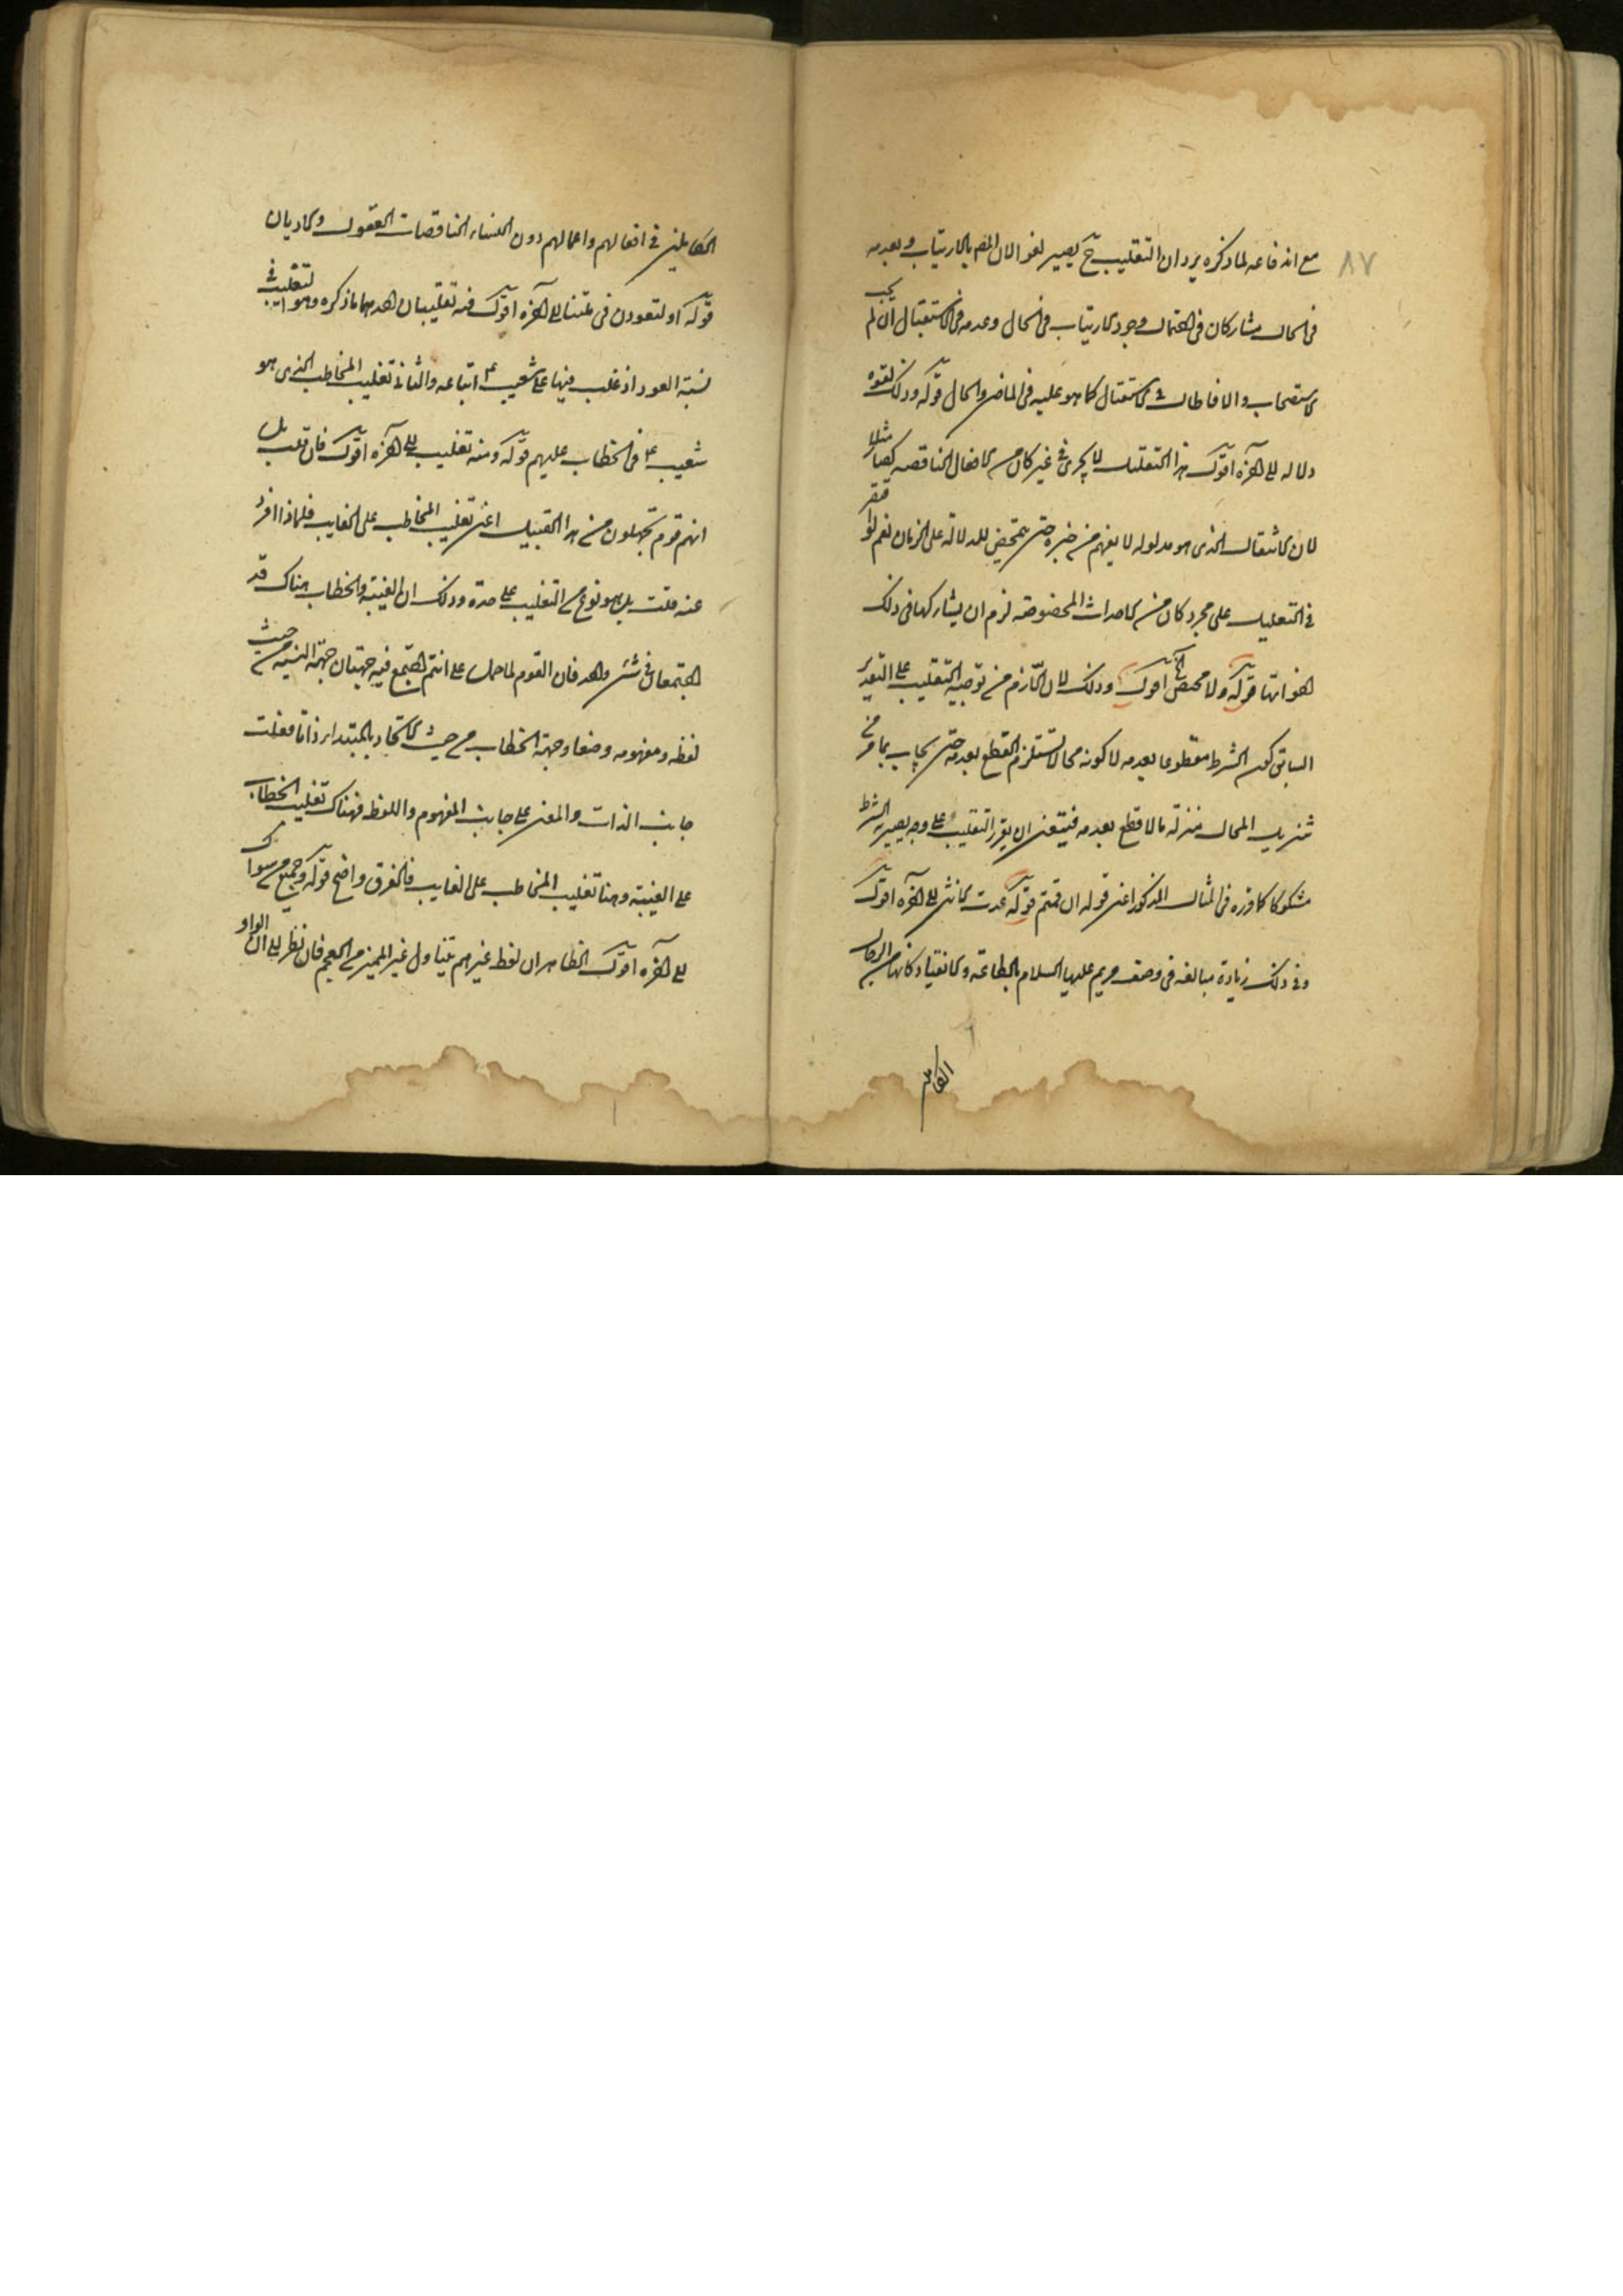 ٨٧
مع اندفاعه لما ذكره يرد ان التغليب ح يصير لغوا لان الجزم بالارتياب وبعدمه
فى الحال مشاركان فى احتمال وجود الارتياب فى الحال وعدمه فى الاستقبال ان لم يجب
الاستصحاب والا فاطال الاستقبال كما هو عليه فى الماضى والحال قوله وذلك لقوة
دلالة الى آخره اقول هذا التعليل لا يجرى فى غير كان من الافعال الناقصة كصار مثلا
لان الانتقال الذى هو مدلوله لا يفهم من خبره حتى يتمحض للدلالة على الزمان نعم لو اقتصر
فى التعليل على مجرد كان من الاحداث المخصوصة لزم ان يشاركها فى ذلك
اخواتها قوله ولا محيص الخ اقول وذلك لان اللازم من توجيه التغليب على التقدير
السابق كون الشرط مقطوعا بعدمه لا كونه محالا يستلزم القطع بعدمه حتى يجاب بما مر من
تنزيل المحال منزلة ما لا قطع بعدمه فيتعين ان يقرر التغليب على وجه يصير به الشرط
مشكوكا كما قرره فى المثال المذكور اعنى قوله ان قمتم قوله عدت الانثى الى آخره اقول
وفى ذلك زيادة مبالغة فى وصف مريم عليها السلام بالطاعة والانقياد كانها من الرجال
الكاملين
الكاملين فى افعالهم واعمالهم دون النساء الناقصات العقول والاديان
قوله او لتعودن فى ملتنا الى آخره اقول فيه تغليبان احدهما ما ذكره وهو التغليب فى
نسبة العود اذ غلب فيها على شعيب ع اتباعه والثانى تغليب المخاطب الذى هو
شعيب ع فى الخطاب عليهم قوله ومنه تغليب الى آخره اقول فان قلت بل
انتم قوم تجهلون من هذا القبيل اعنى تغليب المخاطب على الغايب فلماذا افرد
عنه قلت بل هو نوع من التغليب على حدة وذلك ان الغيبة والخطاب هناك قد
اجتمعا فى شئ واحد فان القوم لما حمل على انتم اجتمع فيه جهتان جهة الغيبة من حيث
لفظه ومفهومه وضعا وجهة الخطاب من حيث الاتحاد بالمبتدا ذاتا فغلبت
جانب الذات والمعنى على جانب المفهوم واللفظ فهناك تغليب الخطاب
على الغيبة وهنا تغليب المخاطب على الغايب فالفرق واضح قوله وجميع من سواك
الى آخره اقول الظاهر ان لفظ غيرهم يتناول غير المميز من العجم فان نظر الى ان الواو